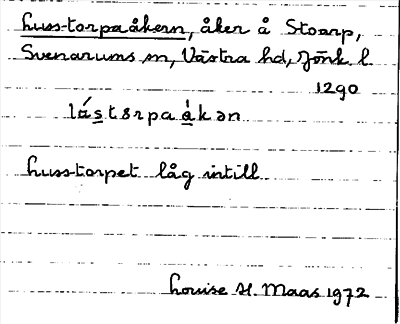 Lusstorpaåkern, åker å Stoarp,
Svenarums sn, Västra hd, Jönk. l.
1290
lástɜrpaákən
Lusstorpet låg intill
Louise H. Maas 1972